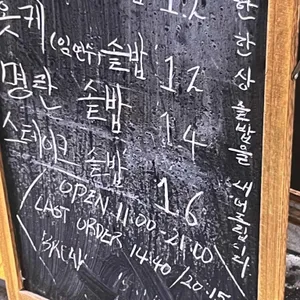 훗케 (임연수) 솥밥 12
명란 솥밥 14
스테이크 솥밥 16
OPEN 11:00-21:00
LAST ORDER 14:40/20:15
BREAK
한 한상 솥밥을 내어드립니다.